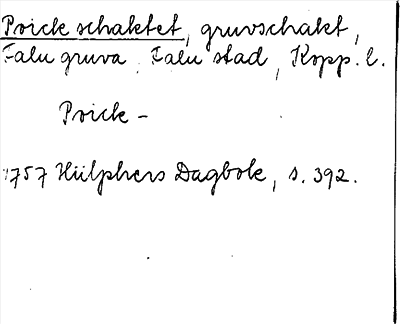 Prick schaktet, gruvschakt,
Falu gruva. Falu stad, Kopp. l.
Prick -
1757 Hülphers Dagbok, s. 392.